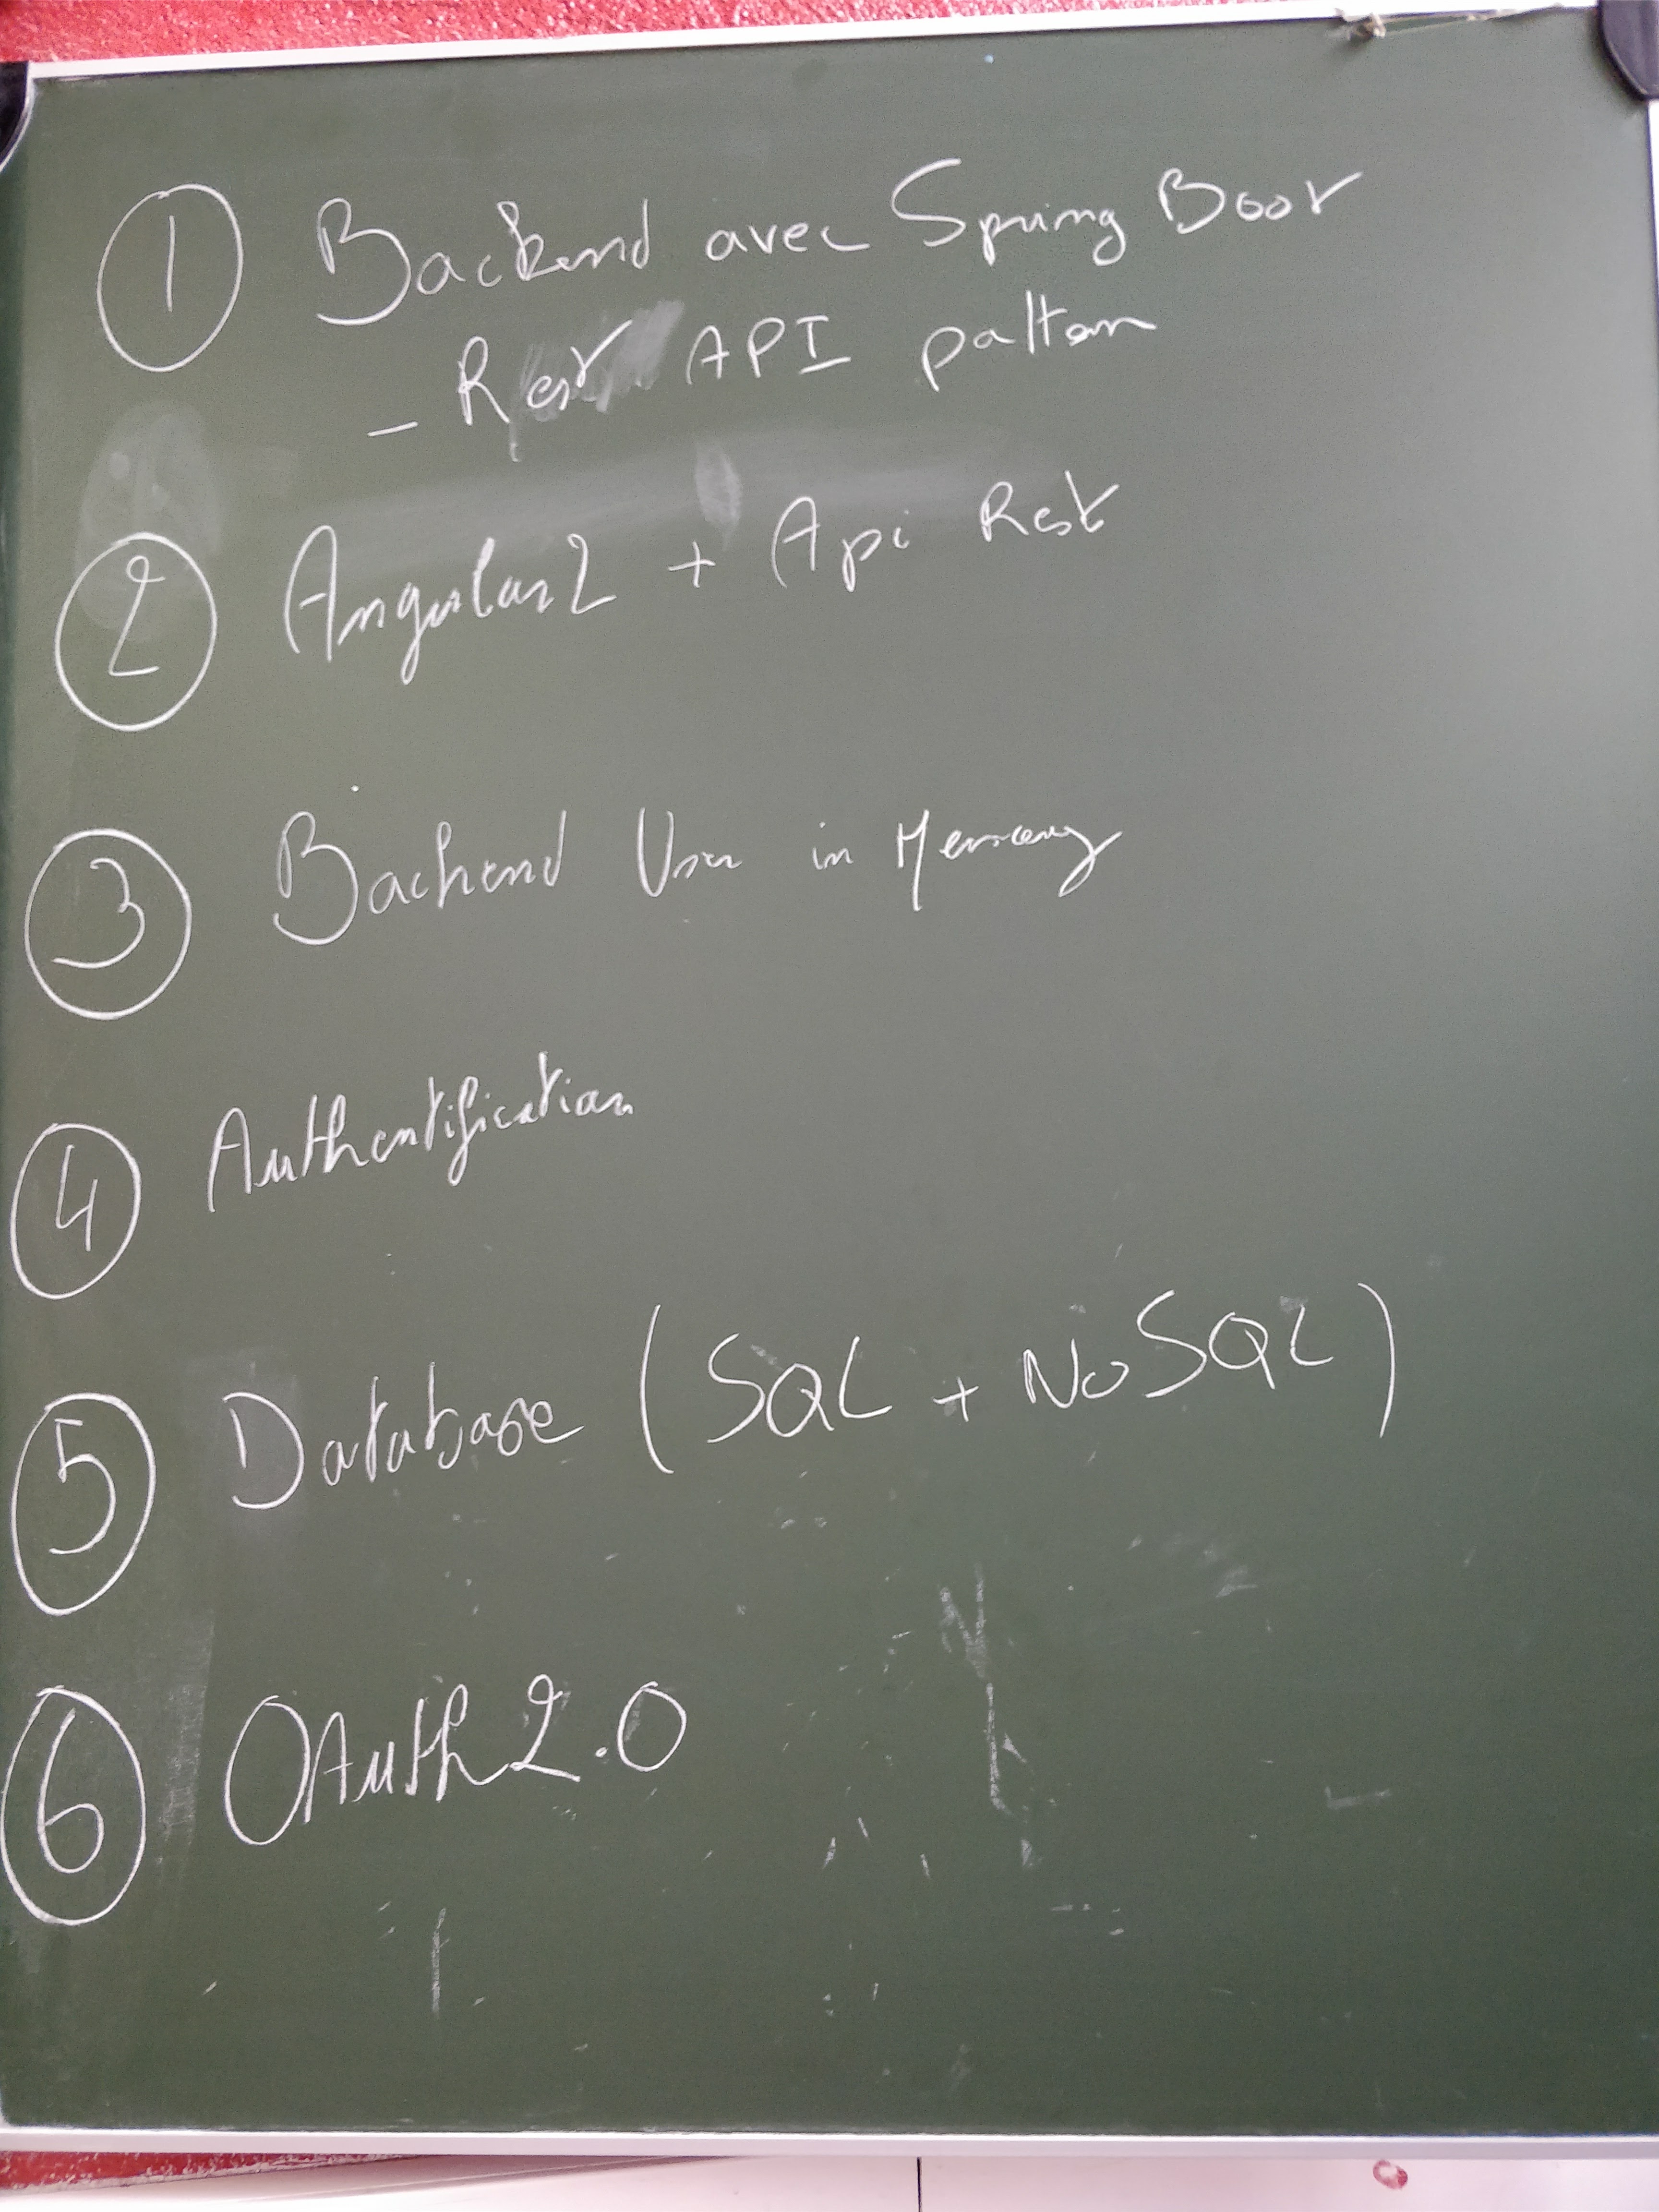 1 Backend avec Spring Boot
- Rest API pattern
2 Angular2 + Api Rest
3 Backend User in Memory
4 Authentification
5 Database (SQL + NoSQL)
6 OAuth2.0